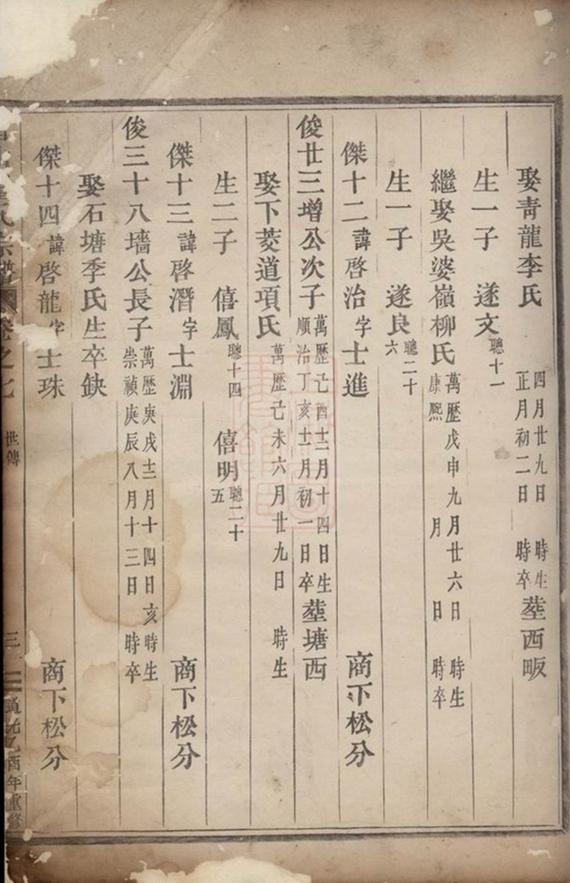 娶青龍李氏 四月廿九日 時生 正月初二日 時卒 塟西畈
生一子 遂文 聰十一
繼娶吳婆嶺柳氏 萬歷戊申九月廿六日 時生 康熙 月 日 時卒
生一子 遂良 聰二十六
傑十二 諱 啓治 字 士進 商下松分
俊廿三增公次子 萬歷己酉十二月十四日生 順治丁亥十一月初一日卒 塟塘西
娶下菱道項氏 萬歷己未六月廿九日 時生
生二子 僖鳳 聰十四 僖明 聰二十五
傑十三 諱 啓潛 字 士淵 商下松分
俊三十八墻公長子 萬歷庚戌十二月十四日亥時生 崇禎庚辰八月十三日 時卒
娶石塘季氏生卒缺
傑十四 諱 啓龍 字 士珠 商下松分
卷之七 世傳
酉年重修